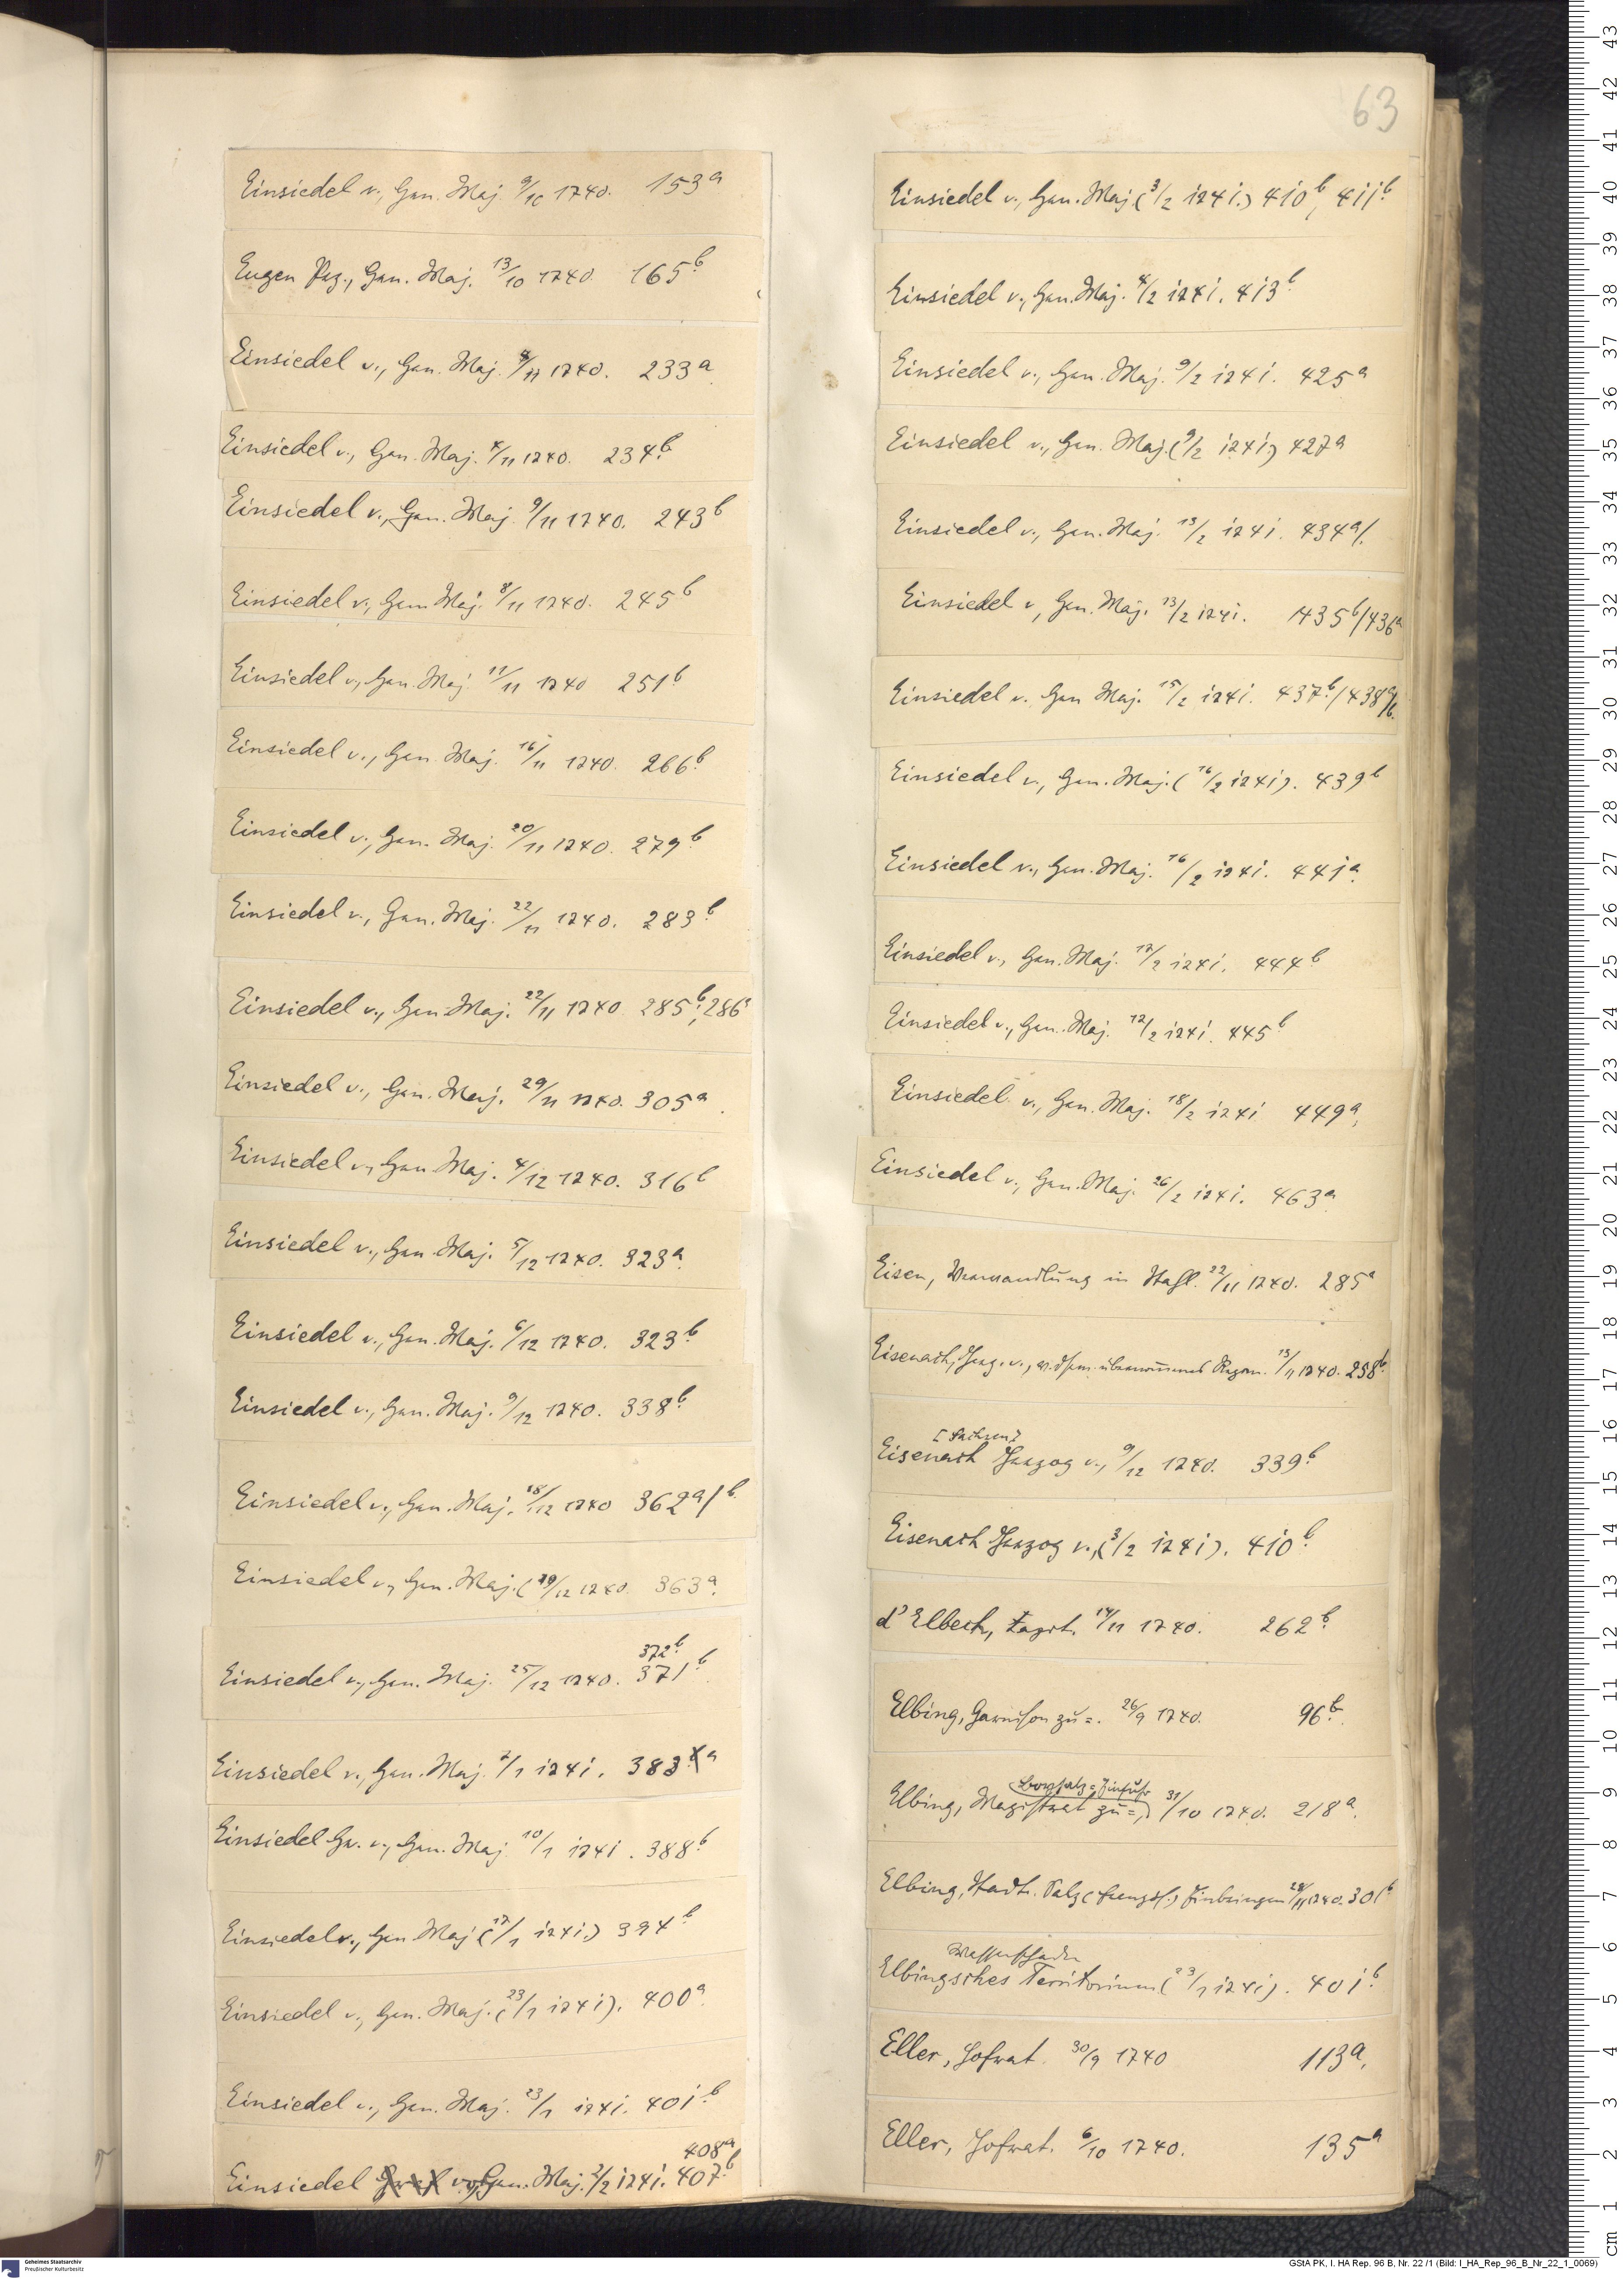 63
Einsiedel v., Gen. Maj. 9/10 1740. 153a
Eugen Prz., Gen. Maj. 13/10 1740. 165b
Einsiedel v., Gen. Maj. 8/11 1740. 233a
Einsiedel v., Gen. Maj. 4/11 1740. 234b
Einsiedel v., Gen. Maj. 9/11 1740. 243b
Einsiedel v., Gen. Maj. 8/11 1740. 245b
Einsiedel v., Gen. Maj. 11/11 1740 251b
Einsiedel v., Gen. Maj. 16/11 1740. 266b
Einsiedel v., Gen. Maj. 20/11 1740. 279b
Einsiedel v., Gen. Maj. 22/11 1740. 283b
Einsiedel v., Gen. Maj. 22/11 1740 285b, 286a
Einsiedel v., Gen. Maj. 29/11 1740. 305a
Einsiedel v., Gen. Maj. 4/12 1740. 316b
Einsiedel v., Gen. Maj. 5/12 1740. 323a
Einsiedel v., Gen. Maj. 6/12 1740. 323b
Einsiedel v., Gen. Maj. 9/12 1740. 338b
Einsiedel v., Gen. Maj. 18/12 1740 362a/b
Einsiedel v., Gen. Maj. (19/12 1740. 363a
372b
Einsiedel v., Gen. Maj. 25/12 1740. 371b
Einsiedel v., Gen. Maj. 7/1 1741. 383a
Einsiedel Gr. v., Gen. Maj. 10/1 1741. 388b
Einsiedel v., Gen. Maj (17/1 1741.) 394b
Einsiedel v., Gen. Maj. (23/1 1741). 400a
Einsiedel v., Gen. Maj. 23/1 1741. 401b
408a
Einsiedel v. Gen. Maj. 2/2 1741. 407b
Einsiedel v., Gen. Maj. (3/2 1741.) 410b, 411b
Einsiedel v., Gen. Maj. 4/2 1741. 413b
Einsiedel v., Gen. Maj. 9/2 1741. 425a
Einsiedel v., Gen. Maj. (9/2 1741.) 427a
Einsiedel v., Gen. Maj. 13/2 1741. 434a/.
Einsiedel v., Gen. Maj. 13/2 1741. 435b/436a
Einsiedel v. Gen Maj. 15/2 1741. 437b/438a/b.
Einsiedel v., Gen. Maj. (16/2 1741). 439b
Einsiedel v., Gen. Maj. 16/2 1741. 441a
Einsiedel v., Gen. Maj. 17/2 1741. 444b
Einsiedel v., Gen. Maj. 17/2 1741. 445b
Einsiedel v., Gen. Maj. 18/2 1741 449a,
Einsiedel v., Gen. Maj. 26/2 1741. 463a
Eisen, Verwandlung in Stahl. 22/11 1740. 285a
Eisenach, Herzg. v., übernommenes Regim. 13/11 1740. 258b
[Sachsen]
Eisenach Herzog v., 9/12 1740. 339b
Eisenach Herzog v., (3/2 1741). 410b
d'Elbech, Capt. 14/11 1740. 262b
Elbing, Garnison zu =. 26/9 1740. 96b
Boysalz-Zinfuhr
Elbing, Magistrat zu =, 31/10 1740. 218a
Elbing, Stadt. Salz Einbringen 28/11 1740. 301b
Wasserschaden
Elbingsches Territorium (23/1 1741). 401b
Eller, Hofrat. 30/9 1740 113a,
Eller, Hofrat. 6/10 1740. 135a
Geheimes Staatsarchiv
Preußischer Kulturbesitz
GStA PK, I. HA Rep. 96 B, Nr. 22 /1 (Bild: I_HA_Rep_96_B_Nr_22_1_0069)
cm 1 2 3 4 5 6 7 8 9 10 11 12 13 14 15 16 17 18 19 20 21 22 23 24 25 26 27 28 29 30 31 32 33 34 35 36 37 38 39 40 41 42 43